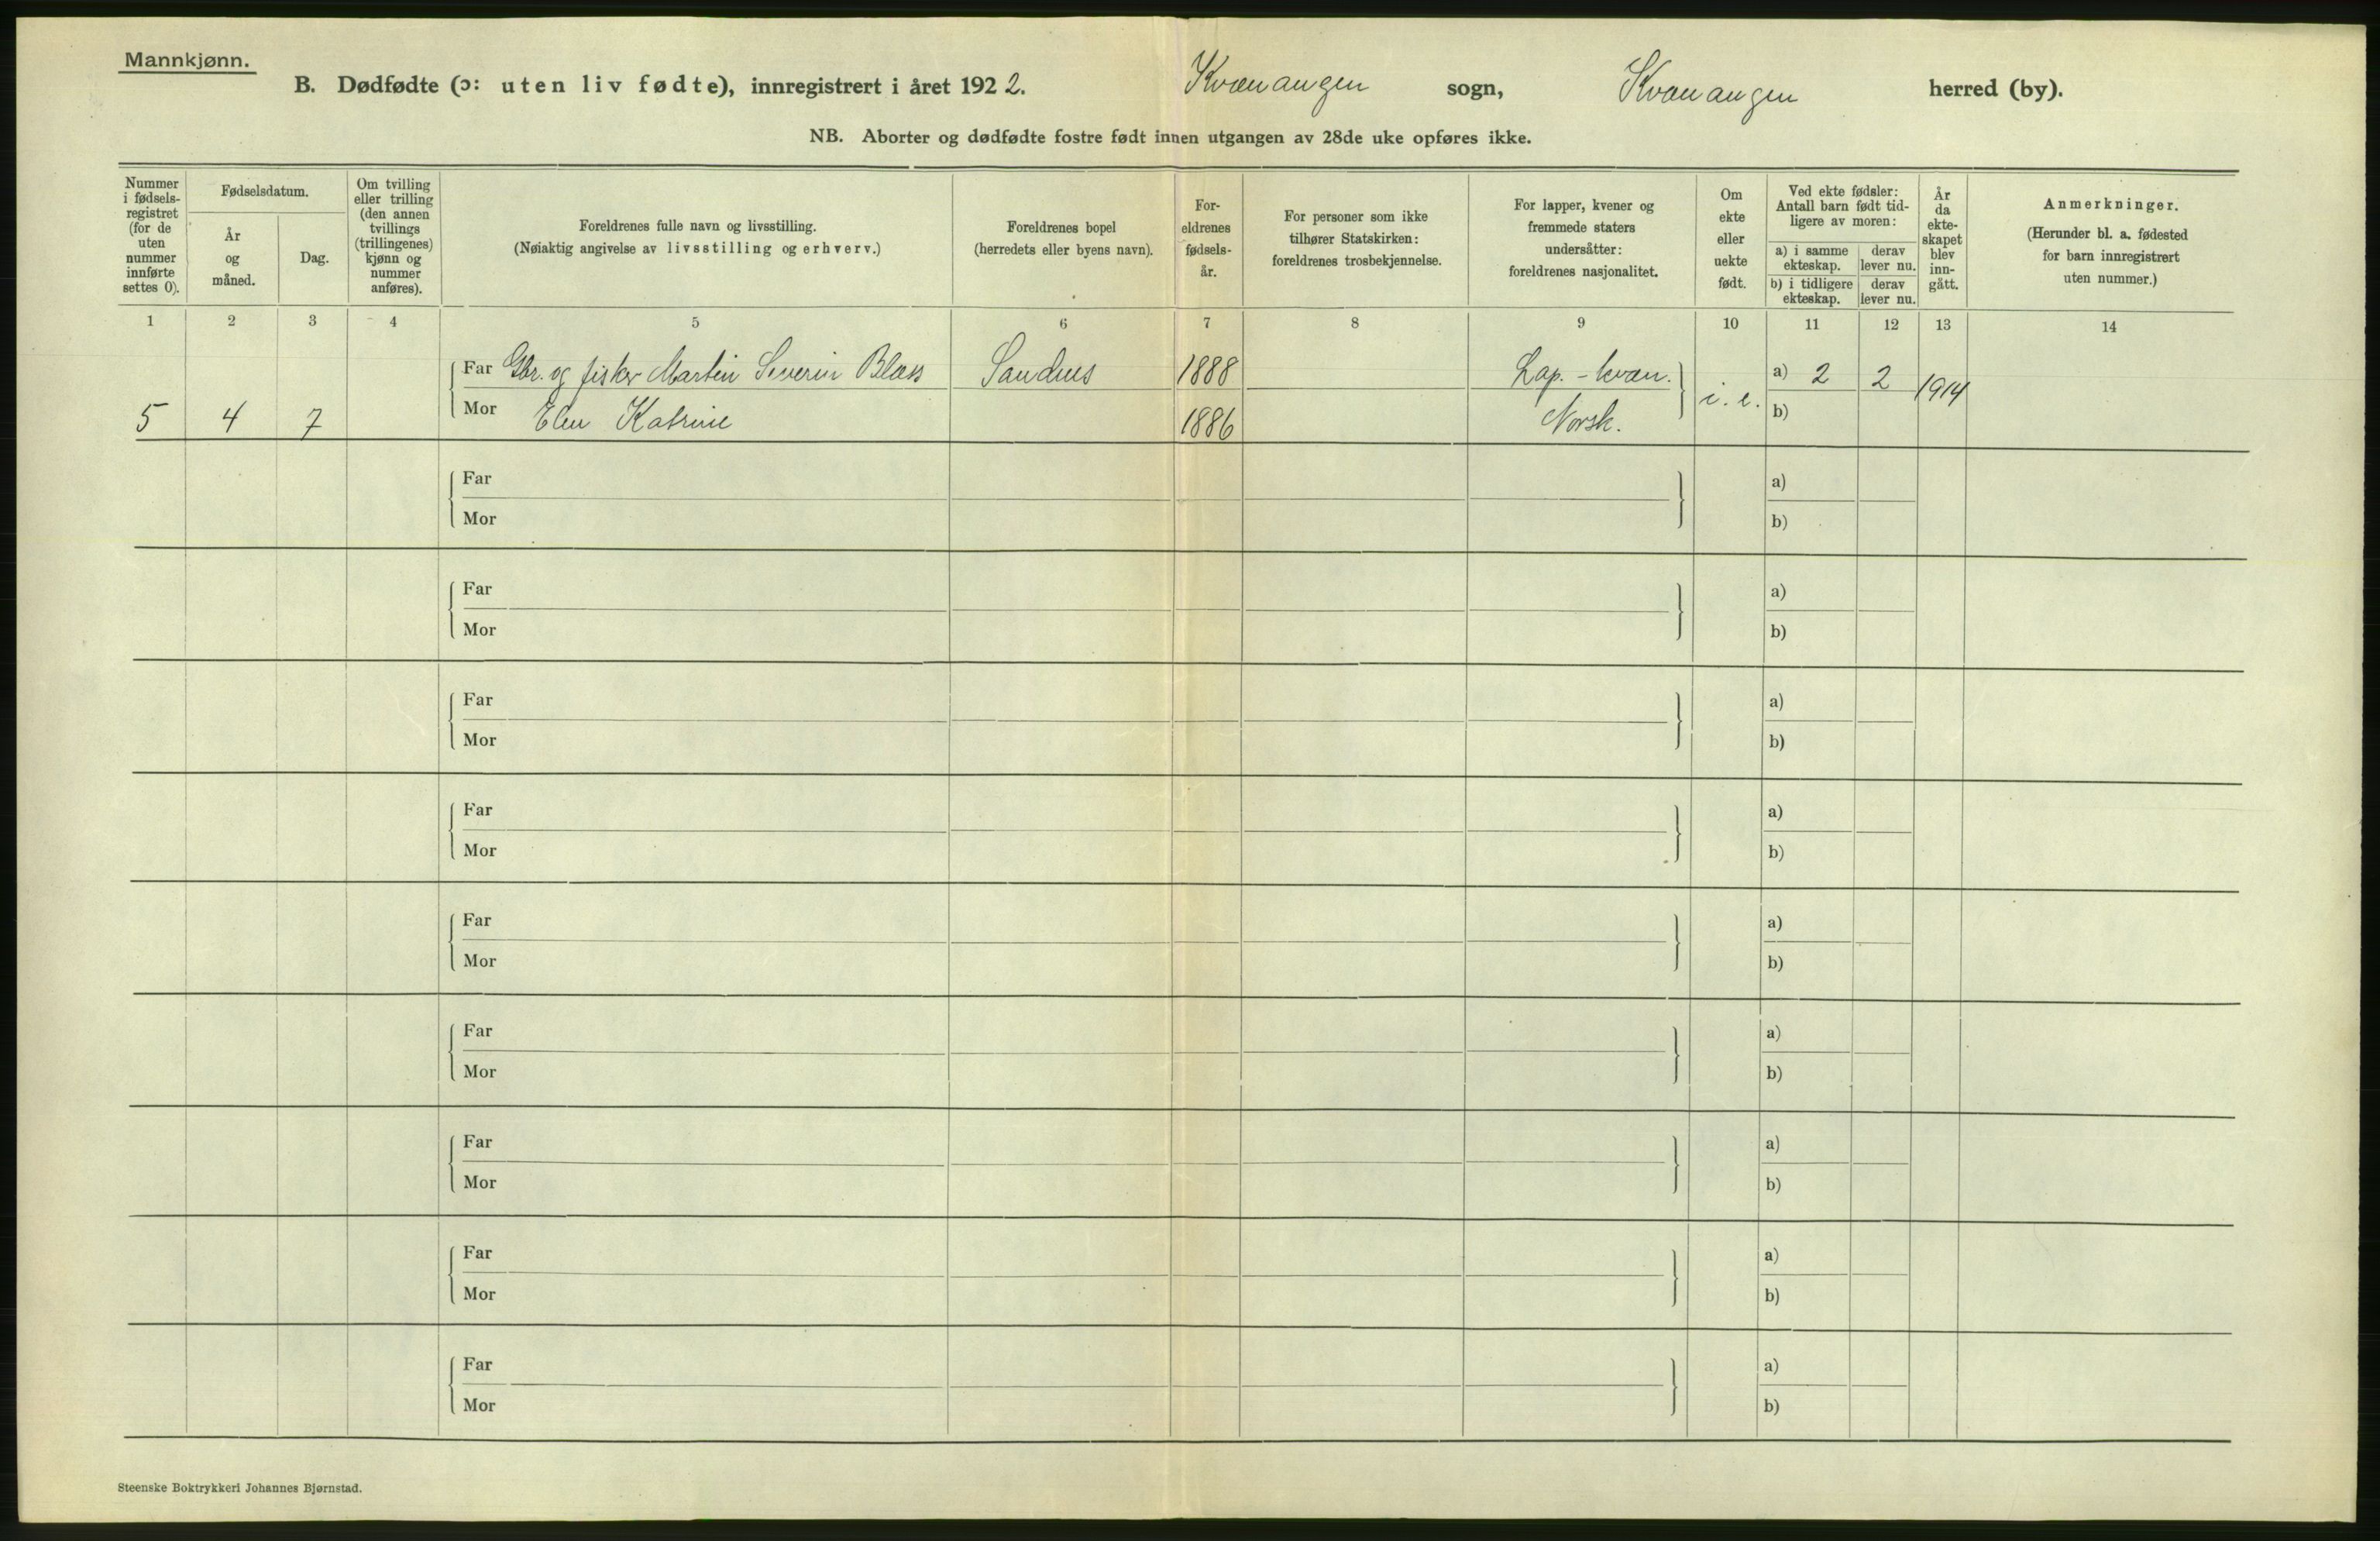 Mannkjønn.
B. Dødfødte (ɔ: uten liv fødte), innregistrert i året 1922. Kvænangen sogn, Kvænangen herred (by).
NB. Aborter og dødfødte fostre født innen utgangen av 28de uke opføres ikke.
Nummer i fødsels-registret (for de uten nummer innførte settes 0).
Fødselsdatum.
År og måned.
Dag.
Om tvilling eller trilling (den annen tvillings (trillingenes) kjønn og nummer anføres).
Foreldrenes fulle navn og livsstilling.
(Nøiaktig angivelse av livsstilling og erhverv.)
Foreldrenes bopel
(herredets eller byens navn).
For-eldrenes fødsels-år.
For personer som ikke tilhører Statskirken: foreldrenes trosbekjennelse.
For lapper, kvener og fremmede staters undersåtter: foreldrenes nasjonalitet.
Om ekte eller uekte født.
Ved ekte fødsler: Antall barn født tid-ligere av moren:
a) i samme ekteskap.
derav lever nu.
b) i tidligere ekteskap.
derav lever nu.
År da ekte-skapet blev inn-gått.
Anmerkninger.
(Herunder bl. a. fødested for barn innregistrert uten nummer.)
1 2 3 4 5 6 7 8 9 10 11 12 13 14
Far Gbr. og fisker Martin Severin Blæss 1888 Lap. - kvæn. a) 2 2 1914
5 4 7 Mor Elen Katrine 1886 Norsk. i. e. b)
Far a)
Mor b)
Far a)
Mor b)
Far a)
Mor b)
Far a)
Mor b)
Far a)
Mor b)
Far a)
Mor b)
Far a)
Mor b)
Far a)
Mor b)
Far a)
Mor b)
Steenske Boktrykkeri Johannes Bjørnstad.